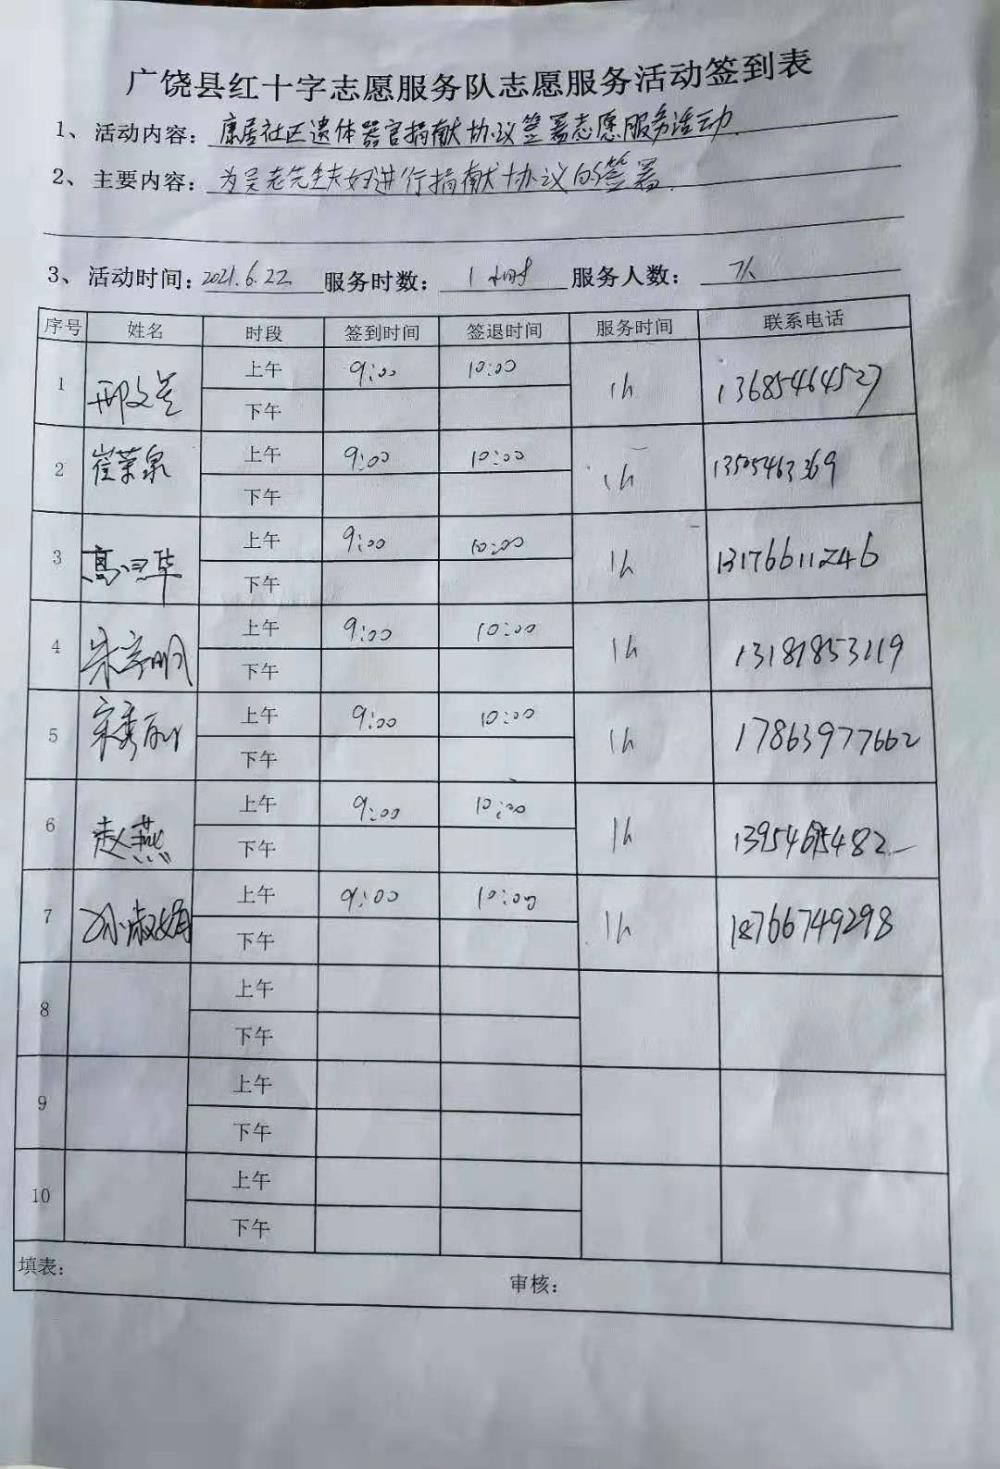 广饶县红十字志愿服务队志愿服务活动签到表
1、活动内容：康居社区遗体器官捐献协议签署志愿服务活动.
2、主要内容：为吴老先生夫妇进行捐献协议的签署.
3、活动时间：2021.6.22 服务时数：1小时 服务人数：7人
序号 姓名 时段 签到时间 签退时间 服务时间 联系电话
1 邢文兰 上午 9:00 10:00 1h 13685464527
下午
2 崔荣泉 上午 9:00 10:00 1h
下午
3 上午 9:00 10:00 1h 13176611246
下午
4 上午 9:00 10:00 1h 13181853119
下午
5 上午 9:00 10:00 1h 17863977662
下午
6 赵燕 上午 9:00 10:00 1h
下午
7 孙淑娟 上午 9:00 10:00 1h 18766749298
下午
8 上午
下午
9 上午
下午
10 上午
下午
填表： 审核：